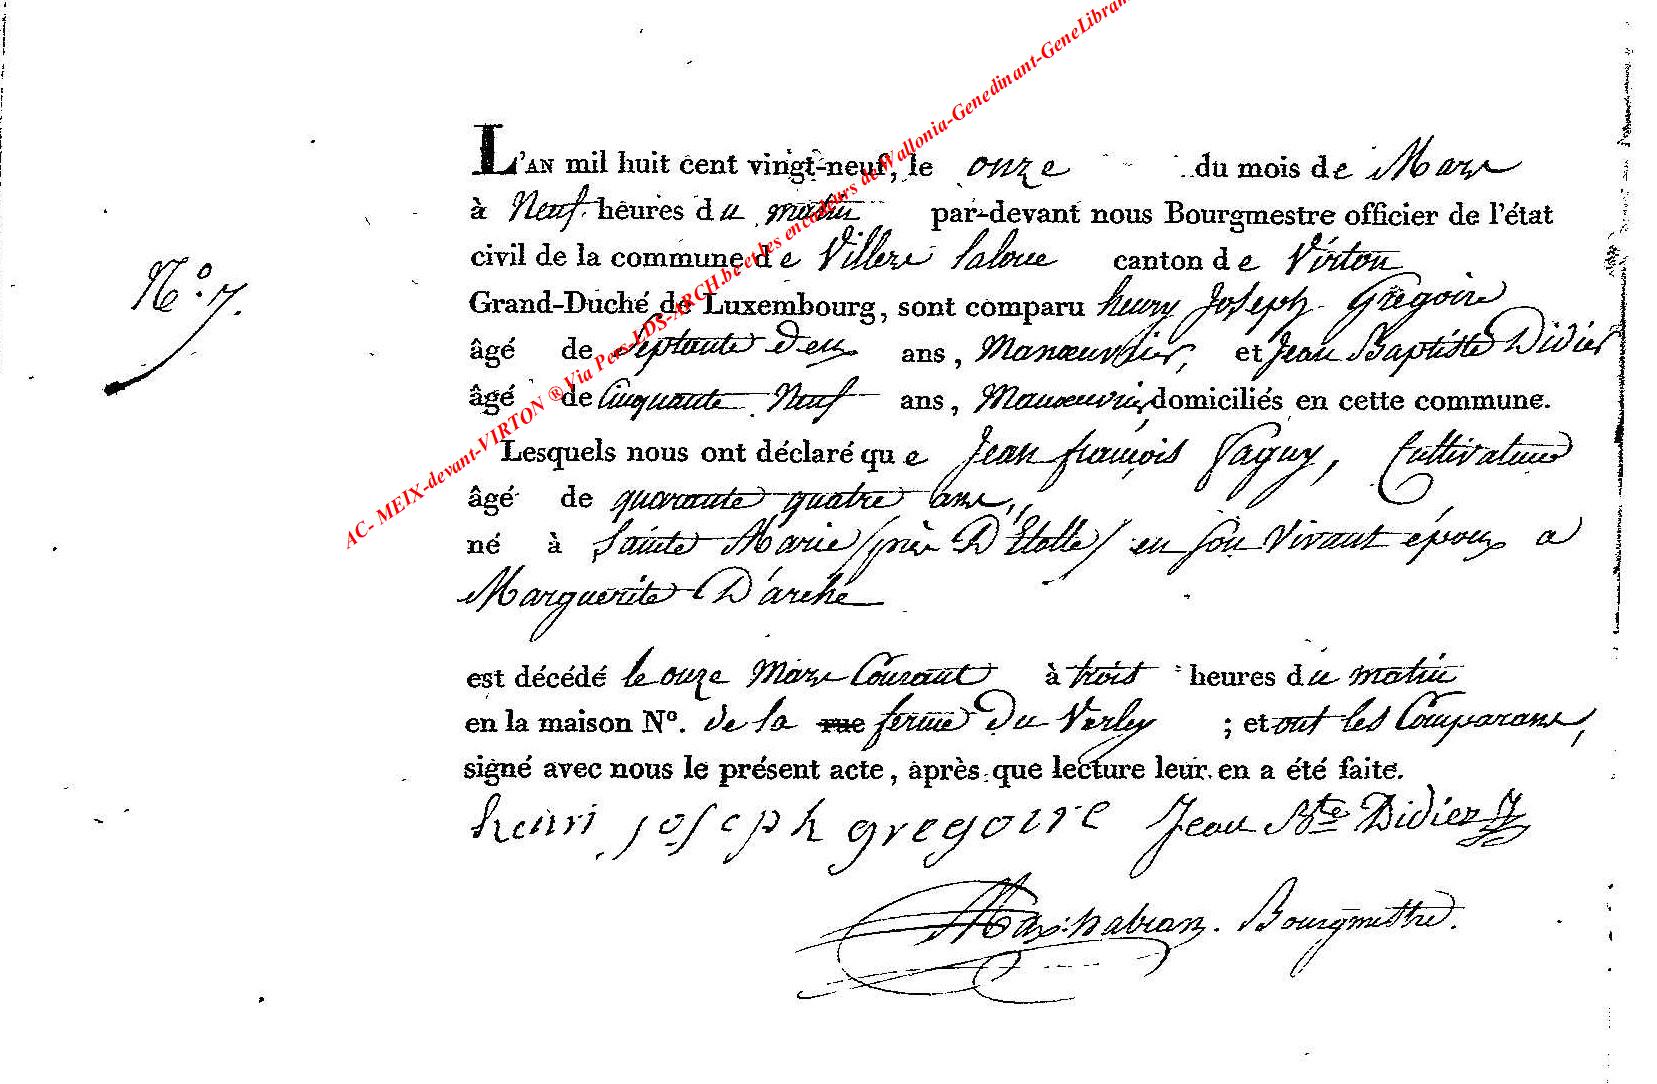 AC- MEIX-devant-VIRTON ® Via Pers-LDS-ARCH.be et les encodeurs de Wallonia-Genedinant-GeneLibran
L'AN mil huit cent vingt-neuf, le onze du mois de Mars
à Neuf heures du matin par-devant nous Bourgmestre officier de l'état
civil de la commune de Villers laloue canton de Virton
N.º 7.
Grand-Duché de Luxembourg, sont comparu henry Joseph Gregoire
âgé de septante deux ans, Manœuvrier, et Jean Baptiste Didier
âgé de Cinquante Neuf ans, Manœuvrier, domiciliés en cette commune.
Lesquels nous ont déclaré que Jean françois Vaguy, Cultivateur
âgé de quarante quatre ans,
né à Sainte Marie (près D'Etalle) en son vivant époux a
Marguerite D'arché
est décédé le onze Mars Courant à trois heures du matin
en la maison Nº. de la rue ferme Du Verly ; et ont les Comparans,
signé avec nous le présent acte, après que lecture leur en a été faite.
henri joseph gregoire Jean Bte Didier
Bourgmestre.